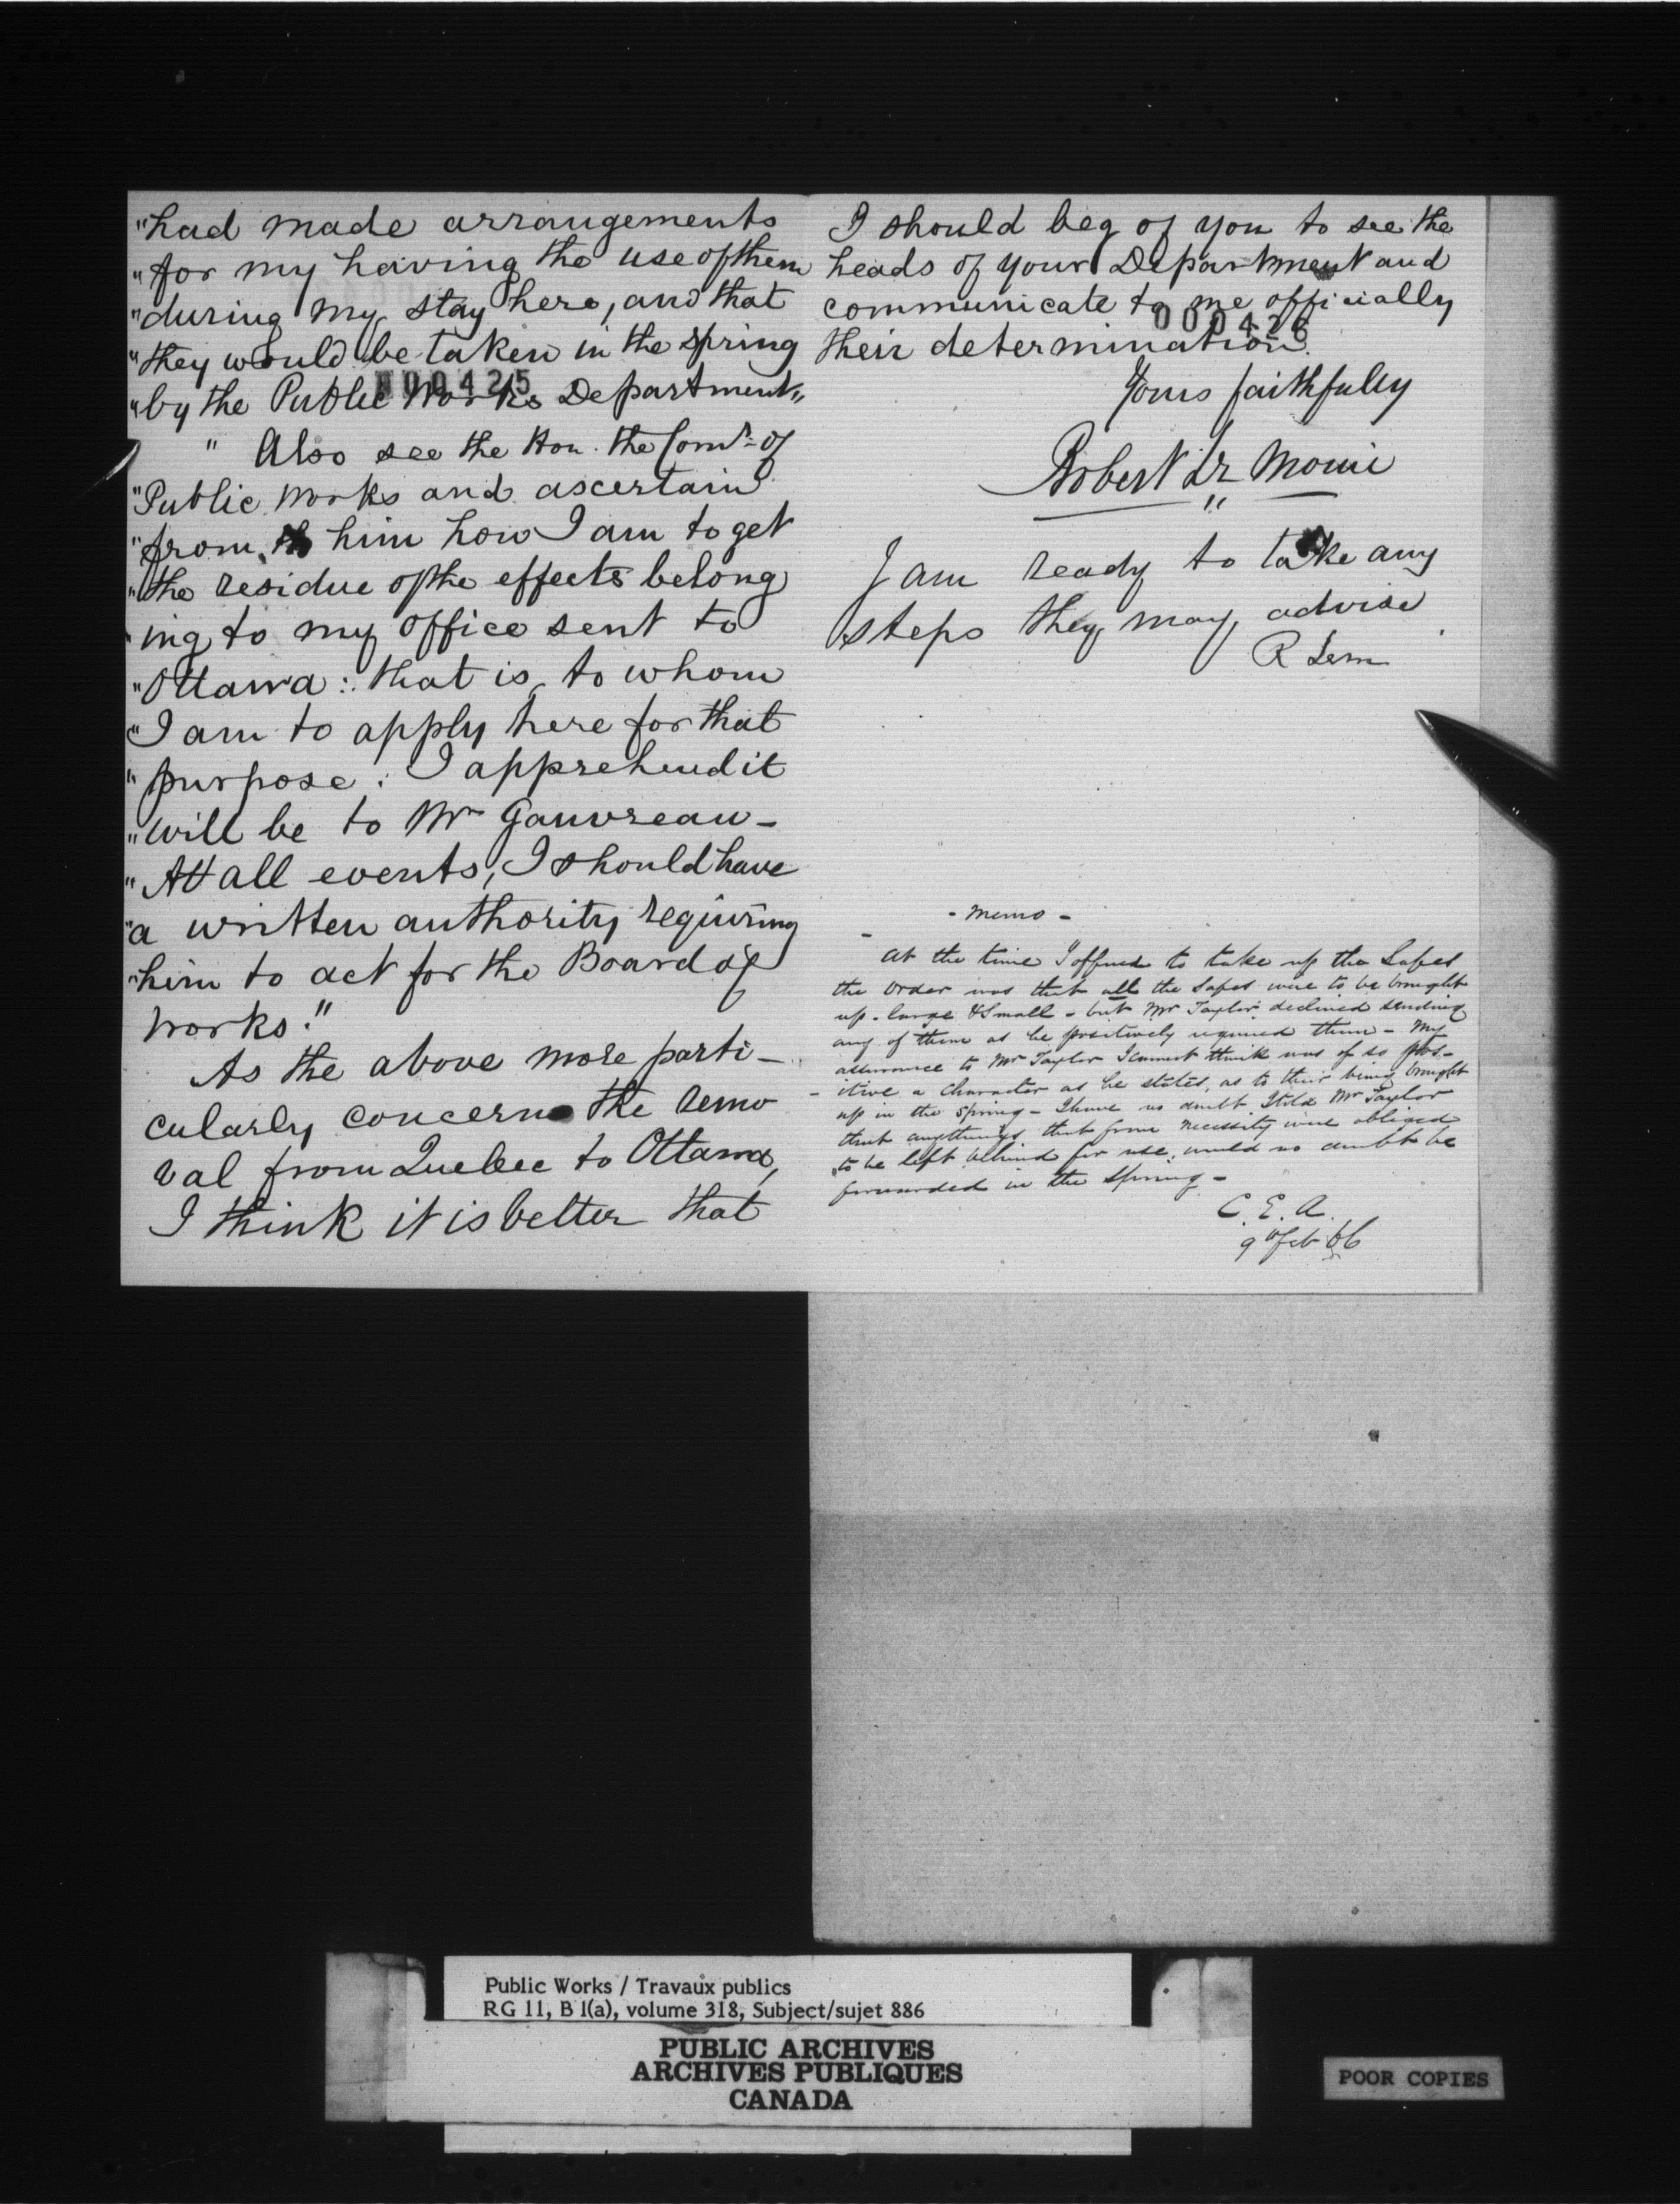 "had made arrangements
"for my having the use of them
"during my stay here, and that
"they would be taken in the spring
"by the Public Works Department"
000425
" Also see the Hon. the Comr. of
"Public Works and ascertain
"from him how I am to get
"the residue of the effects belong
"ing to my office sent to
"Ottawa: that is, to whom
"I am to apply here for that
"purpose: I apprehend it
"will be to Mr Gauvreau -
"At all events, I should have
"a written authority requiring
"him to act for the Board of
Works."
As the above more parti-
cularly concerns the remo
val from Quebec to Ottawa,
I think it is better that
I should beg of you to see the
heads of your Department and
communicate to me officially
000426
their determination.
Yours faithfully
Robert Le Moine
I am ready to take any
steps they may advise
R Lem
- Memo -
At the time I offered to take up the Safes
the order was that all the Safes were to be brought
up - large & Small - but Mr Taylor declined sending
any of them as he positively required them - My
assurance to Mr Taylor I cannot think was of so pos-
itive a character as he states, as to their being brought
up in the Spring - I have no doubt I told Mr Taylor
that anythings that from necessity were obliged
to be left behind for use, would no doubt be
forwarded in the Spring -
C. E. A.
9th Feb 66
Public Works / Travaux publics
RG 11, B 1(a), volume 318, Subject/sujet 886
PUBLIC ARCHIVES
ARCHIVES PUBLIQUES
CANADA
POOR COPIES